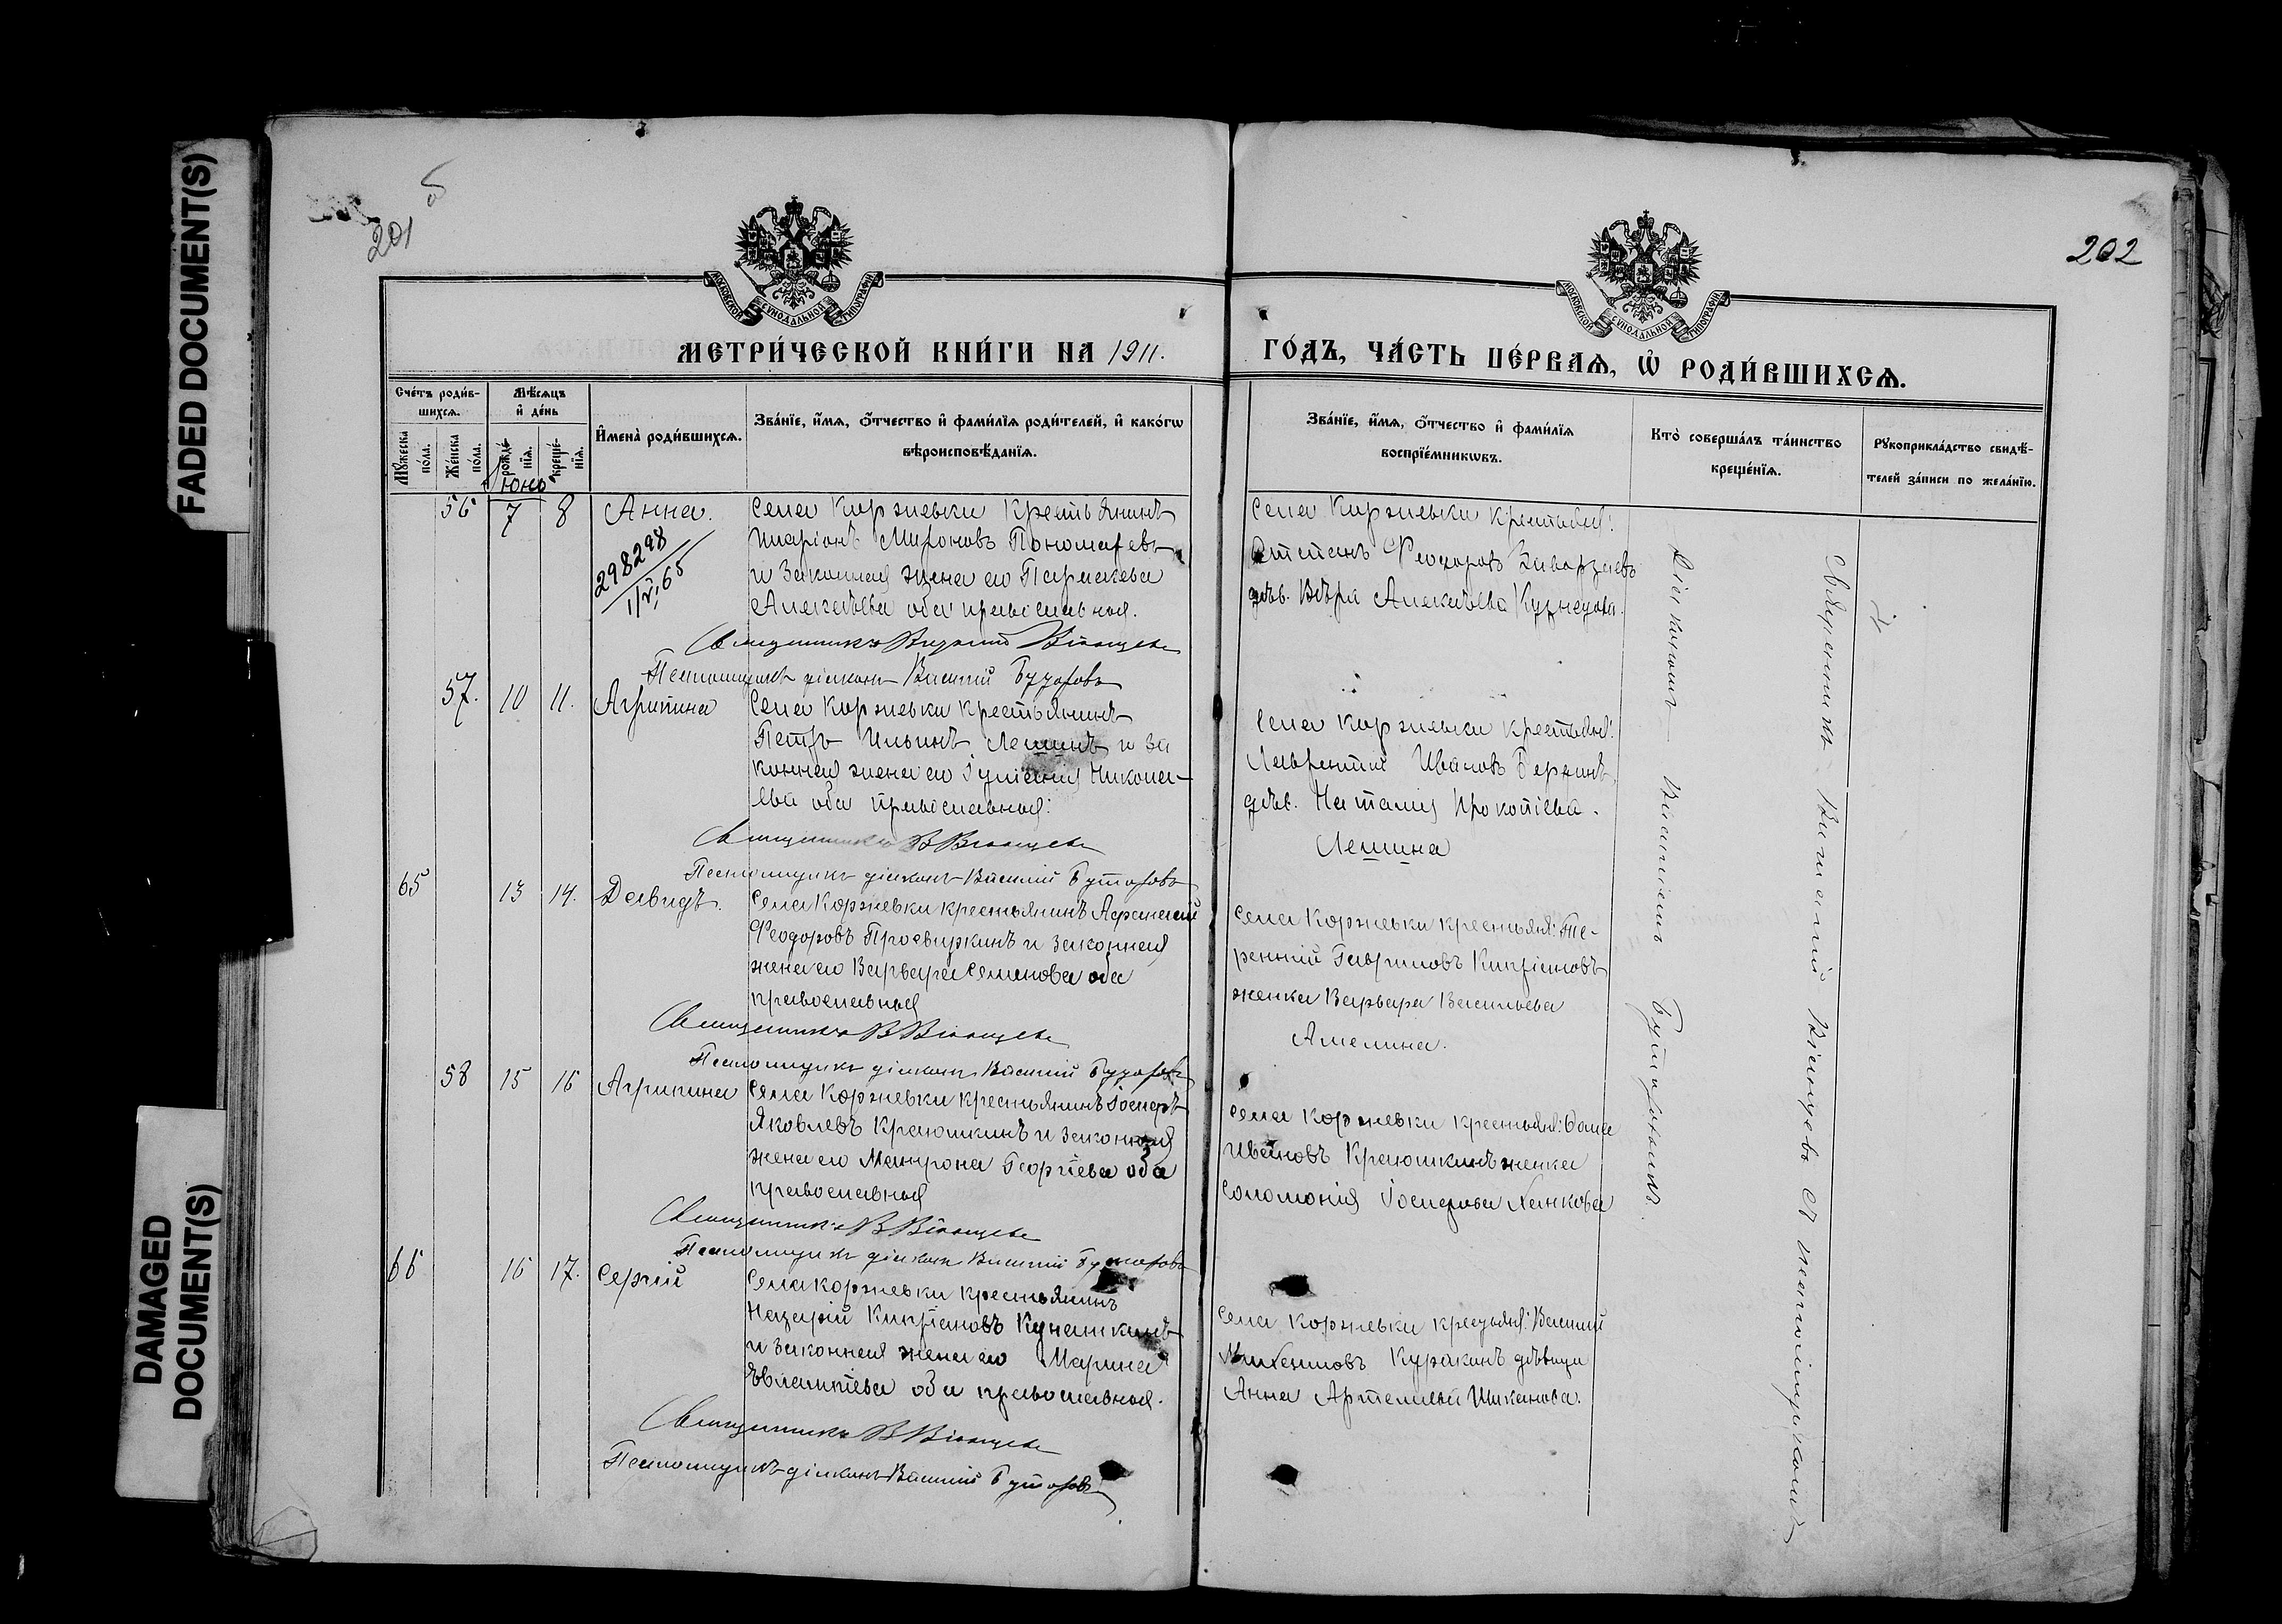 FADED DOCUMENT(S)
DAMAGED
DOCUMENT(S)
201 об
202
МОСКОВСКОЙ СУНОДАЛЬНОЙ ТИПОГРАФІИ
МОСКОВСКОЙ СУНОДАЛЬНОЙ ТИПОГРАФІИ
МЕТРИ́ЧЕСКОЙ КНИ́ГИ НА 1911.
ГО́ДЪ, ЧА́СТЬ ПЕ́РВАѦ, Ѡ҆ РОДИ́ВШИХСѦ.
Сче́тъ роди́в-
шихсѧ.
Мꙋ́жеска
по́ла.
Же́нска
по́ла.
Мѣ́сѧцъ
и҆ де́нь
рожде́-
нїѧ.
креще́-
нїѧ.
Юнь
И҆мена̀ роди́вшихсѧ.
Зва́нїе, и҆́мѧ, ѻ҆́тчество и҆ фами́лїѧ роди́телей, и҆ како́гѡ
вѣроисповѣ́данїѧ.
Зва́нїе, и҆́мѧ, ѻ҆́тчество и҆ фами́лїѧ
воспрїе́мникѡвъ.
Кто̀ соверша́лъ та́инство
креще́нїѧ.
Рꙋкоприкла́дство свидѣ́-
телей за́писи по жела́нїю.
56 7 8 Анна.
298298
1/VI 65
Села Коржевки крестьянинъ
Иларіонъ Мироновъ Пономаревъ
и законная жена его
Алексѣева оба православныя.
Священникъ Виталій Віанцевъ
Псаломщикъ діаконъ Василій Бутаровъ
Села Коржевки крестьян:
Стефанъ Феодоровъ
дѣв. Вѣра Алексѣева Кузнецова.
57. 10 11. Агрипина
Села Коржевки крестьянинъ
Петръ Ильинъ Лешинъ и за
конная жена его Іуліанія Никола-
ева оба православныя:
Священникъ В Віанцевъ
Псаломщикъ діаконъ Василій Бутаровъ
Села Коржевки крестьян:
Лаврентій Ивановъ
дѣв. Наталія Прокопіева.
Лешина
65 13 14. Давидъ.
Села Коржевки крестьянинъ Афанасій
Феодоровъ Просвиркинъ и законная
жена его Варвара Семенова оба
православныя
Священникъ В Віанцевъ
Псаломщикъ діаконъ Василій Бутаровъ
Села Коржевки крестьян: Те-
рентій Гавриловъ Кипріановъ
женка Варвара Васильева
Амелина.
58 15 16 Агрипина
Села Коржевки крестьянинъ Іосифъ
Яковлевъ Краюшкинъ и законная
жена его Матрона Георгіева оба
православныя
Священникъ В Віанцевъ
Псаломщикъ діаконъ Василій Бутаровъ
Села Коржевки крестьян: Ѳома
Ивановъ Краюшкинъ женка
Соломонія Іосифова
66 16 17. Сергій
Села Коржевки крестьянинъ
Назарій Кипріановъ Кунашкинъ
и законная жена его Марина
Евлампіева оба православныя.
Священникъ В Віанцевъ
Псаломщикъ діаконъ Василій Бутаровъ
Села Коржевки крестьян: Василій
Михаиловъ Куракинъ дѣвица
Анна Артемьева Шиканова.
Священникъ Виталій Віанцевъ съ псаломщикомъ
Діакономъ Василіемъ Бутаровымъ.